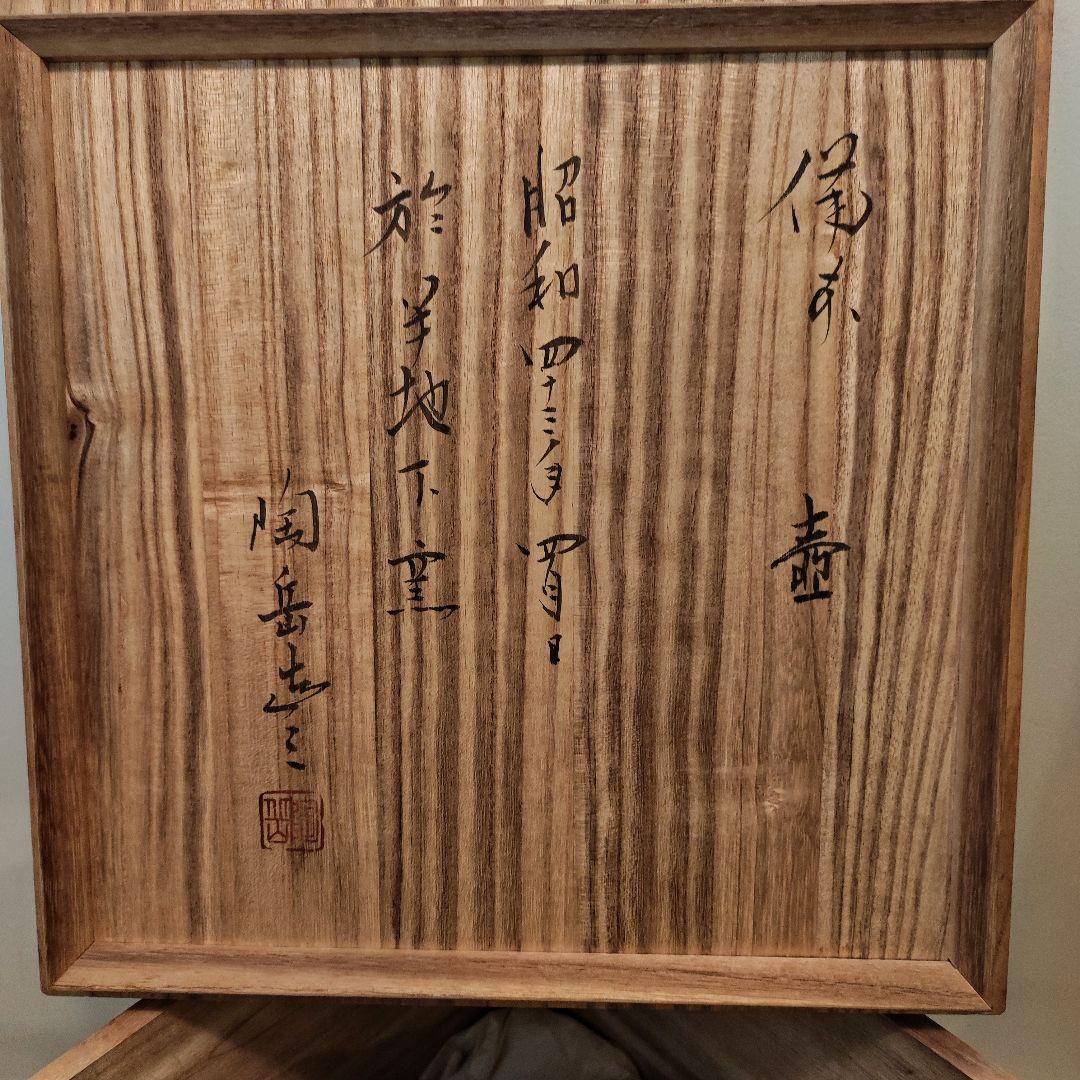 備前 壺
昭和四十三年四月日
於半地下窯
陶岳造之
陶岳